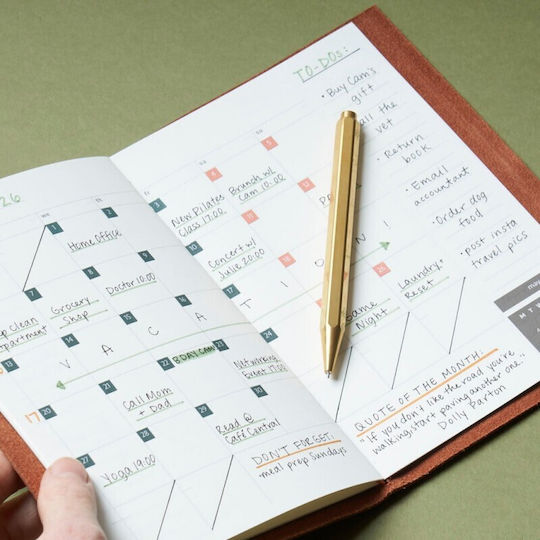 26
WE
TH
FR
SA
SU
1
2
3
4
5
Home Office
New Pilates
Class 17.00
Brunch w/
Cam 10.00
7
8
9
10
11
12
ep Clean
partment
Grocery
Shop
Doctor 10.00
Concert w/
Julie 20.00
13
14
15
16
17
18
V A C A T I O N !
20
21
22
24
26
17
BDAY CAM
Call Mom
+ Dad
Networking
Event 17.00
Game
Night
Laundry +
Reset
27
28
29
30
Yoga 19.00
Read @
Café Central
DON'T FORGET:
•meal prep Sundays
TO-DOs:
• Buy Cam's
gift
all the
vet
• Return
book
• Email
accountant
•Order dog
food
•post insta
travel pics
M T W
QUOTE OF THE MONTH:
"If you don't like the road, you're
walking, start paving another one."
Dolly Parton